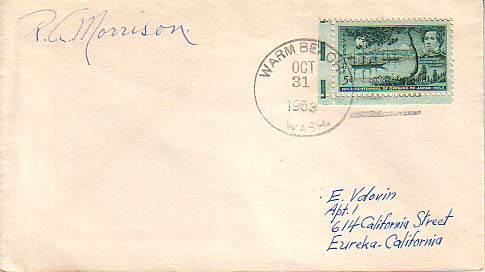 P. A. Morrison
WARM BEACH
OCT
31
1953
WASH.
5¢
1853-CENTENNIAL OF OPENING OF JAPAN-1953
E. Vdovin
Apt. 1
614 California Street
Eureka-California